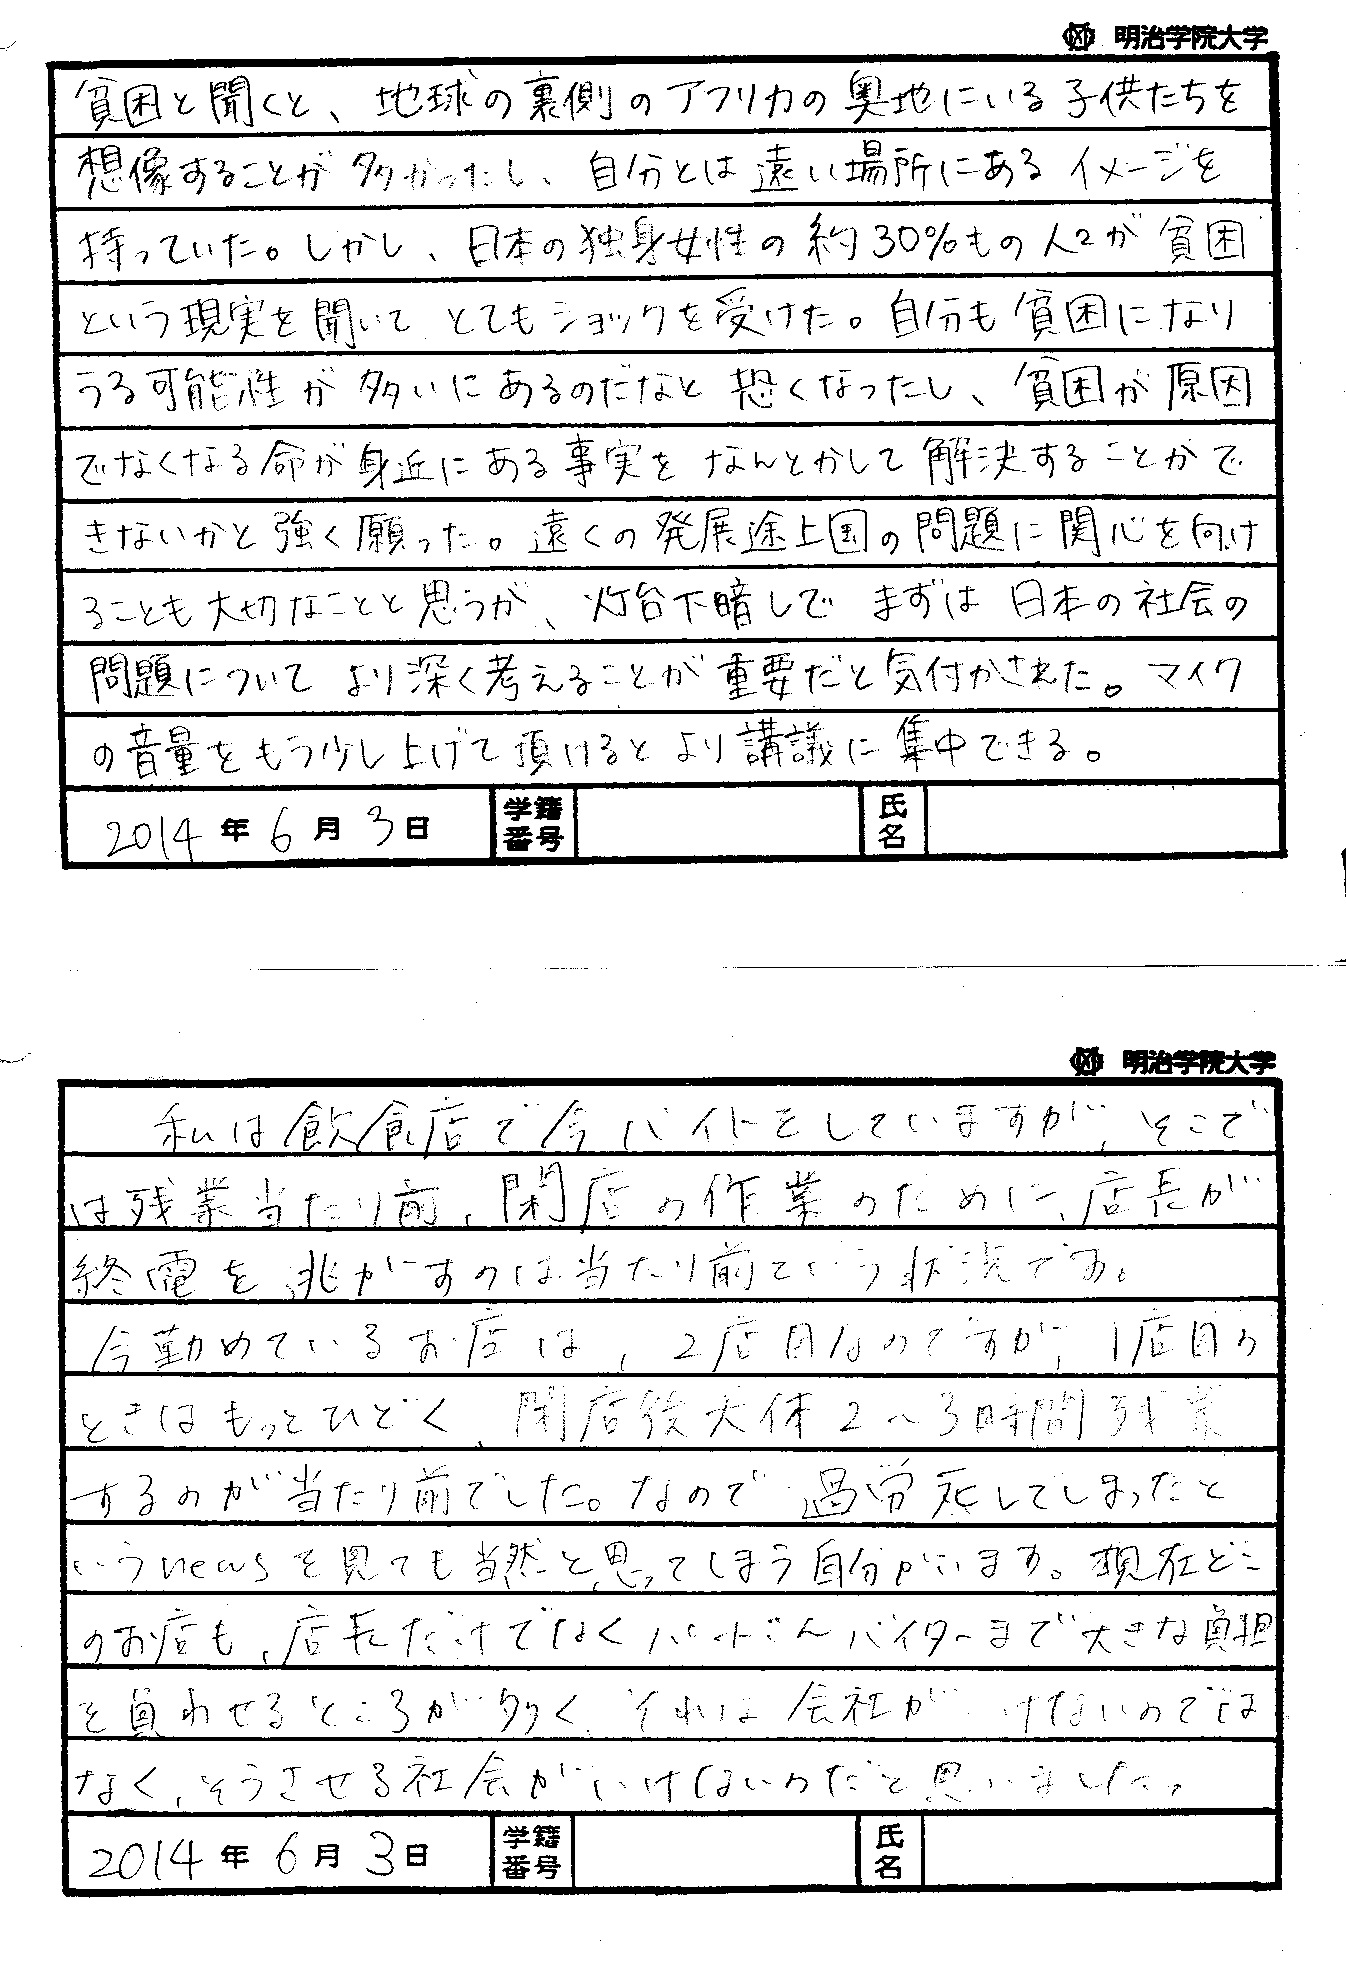 明治学院大学
貧困と聞くと、地球の裏側のアフリカの奥地にいる子供たちを
想像することが多かったし、自分とは遠い場所にあるイメージを
持っていた。しかし、日本の独身女性の約30%もの人々が貧困
という現実を聞いてとてもショックを受けた。自分も貧困になり
うる可能性が多いにあるのだなと恐くなったし、貧困が原因
でなくなる命が身近にある事実をなんとかして解決することがで
きないかと強く願った。遠くの発展途上国の問題に関心を向け
ることも大切なことと思うが、灯台下暗しでまずは日本の社会の
問題についてより深く考えることが重要だと気付かされた。マイク
の音量をもう少し上げて頂けるとより講議に集中できる。
2014年6月3日 学籍番号 氏名
明治学院大学
私は飲食店で今バイトをしていますが、そこで
は残業当たり前、閉店の作業のために、店長が
終電を逃がすのは当たり前という状況です。
今勤めているお店は、2店目なのですが、1店目の
ときはもっとひどく、閉店後大体2〜3時間残業
するのが当たり前でした。なので過労死してしまったと
いうnewsを見ても当然と思ってしまう自分がいます。現在どこ
のお店も、店長だけでなくパートさんバイターまで大きな負担
を負わせるところが多く、それは会社がいけないのでは
なく、そうさせる社会がいけないのだと思いました。
2014年6月3日 学籍番号 氏名